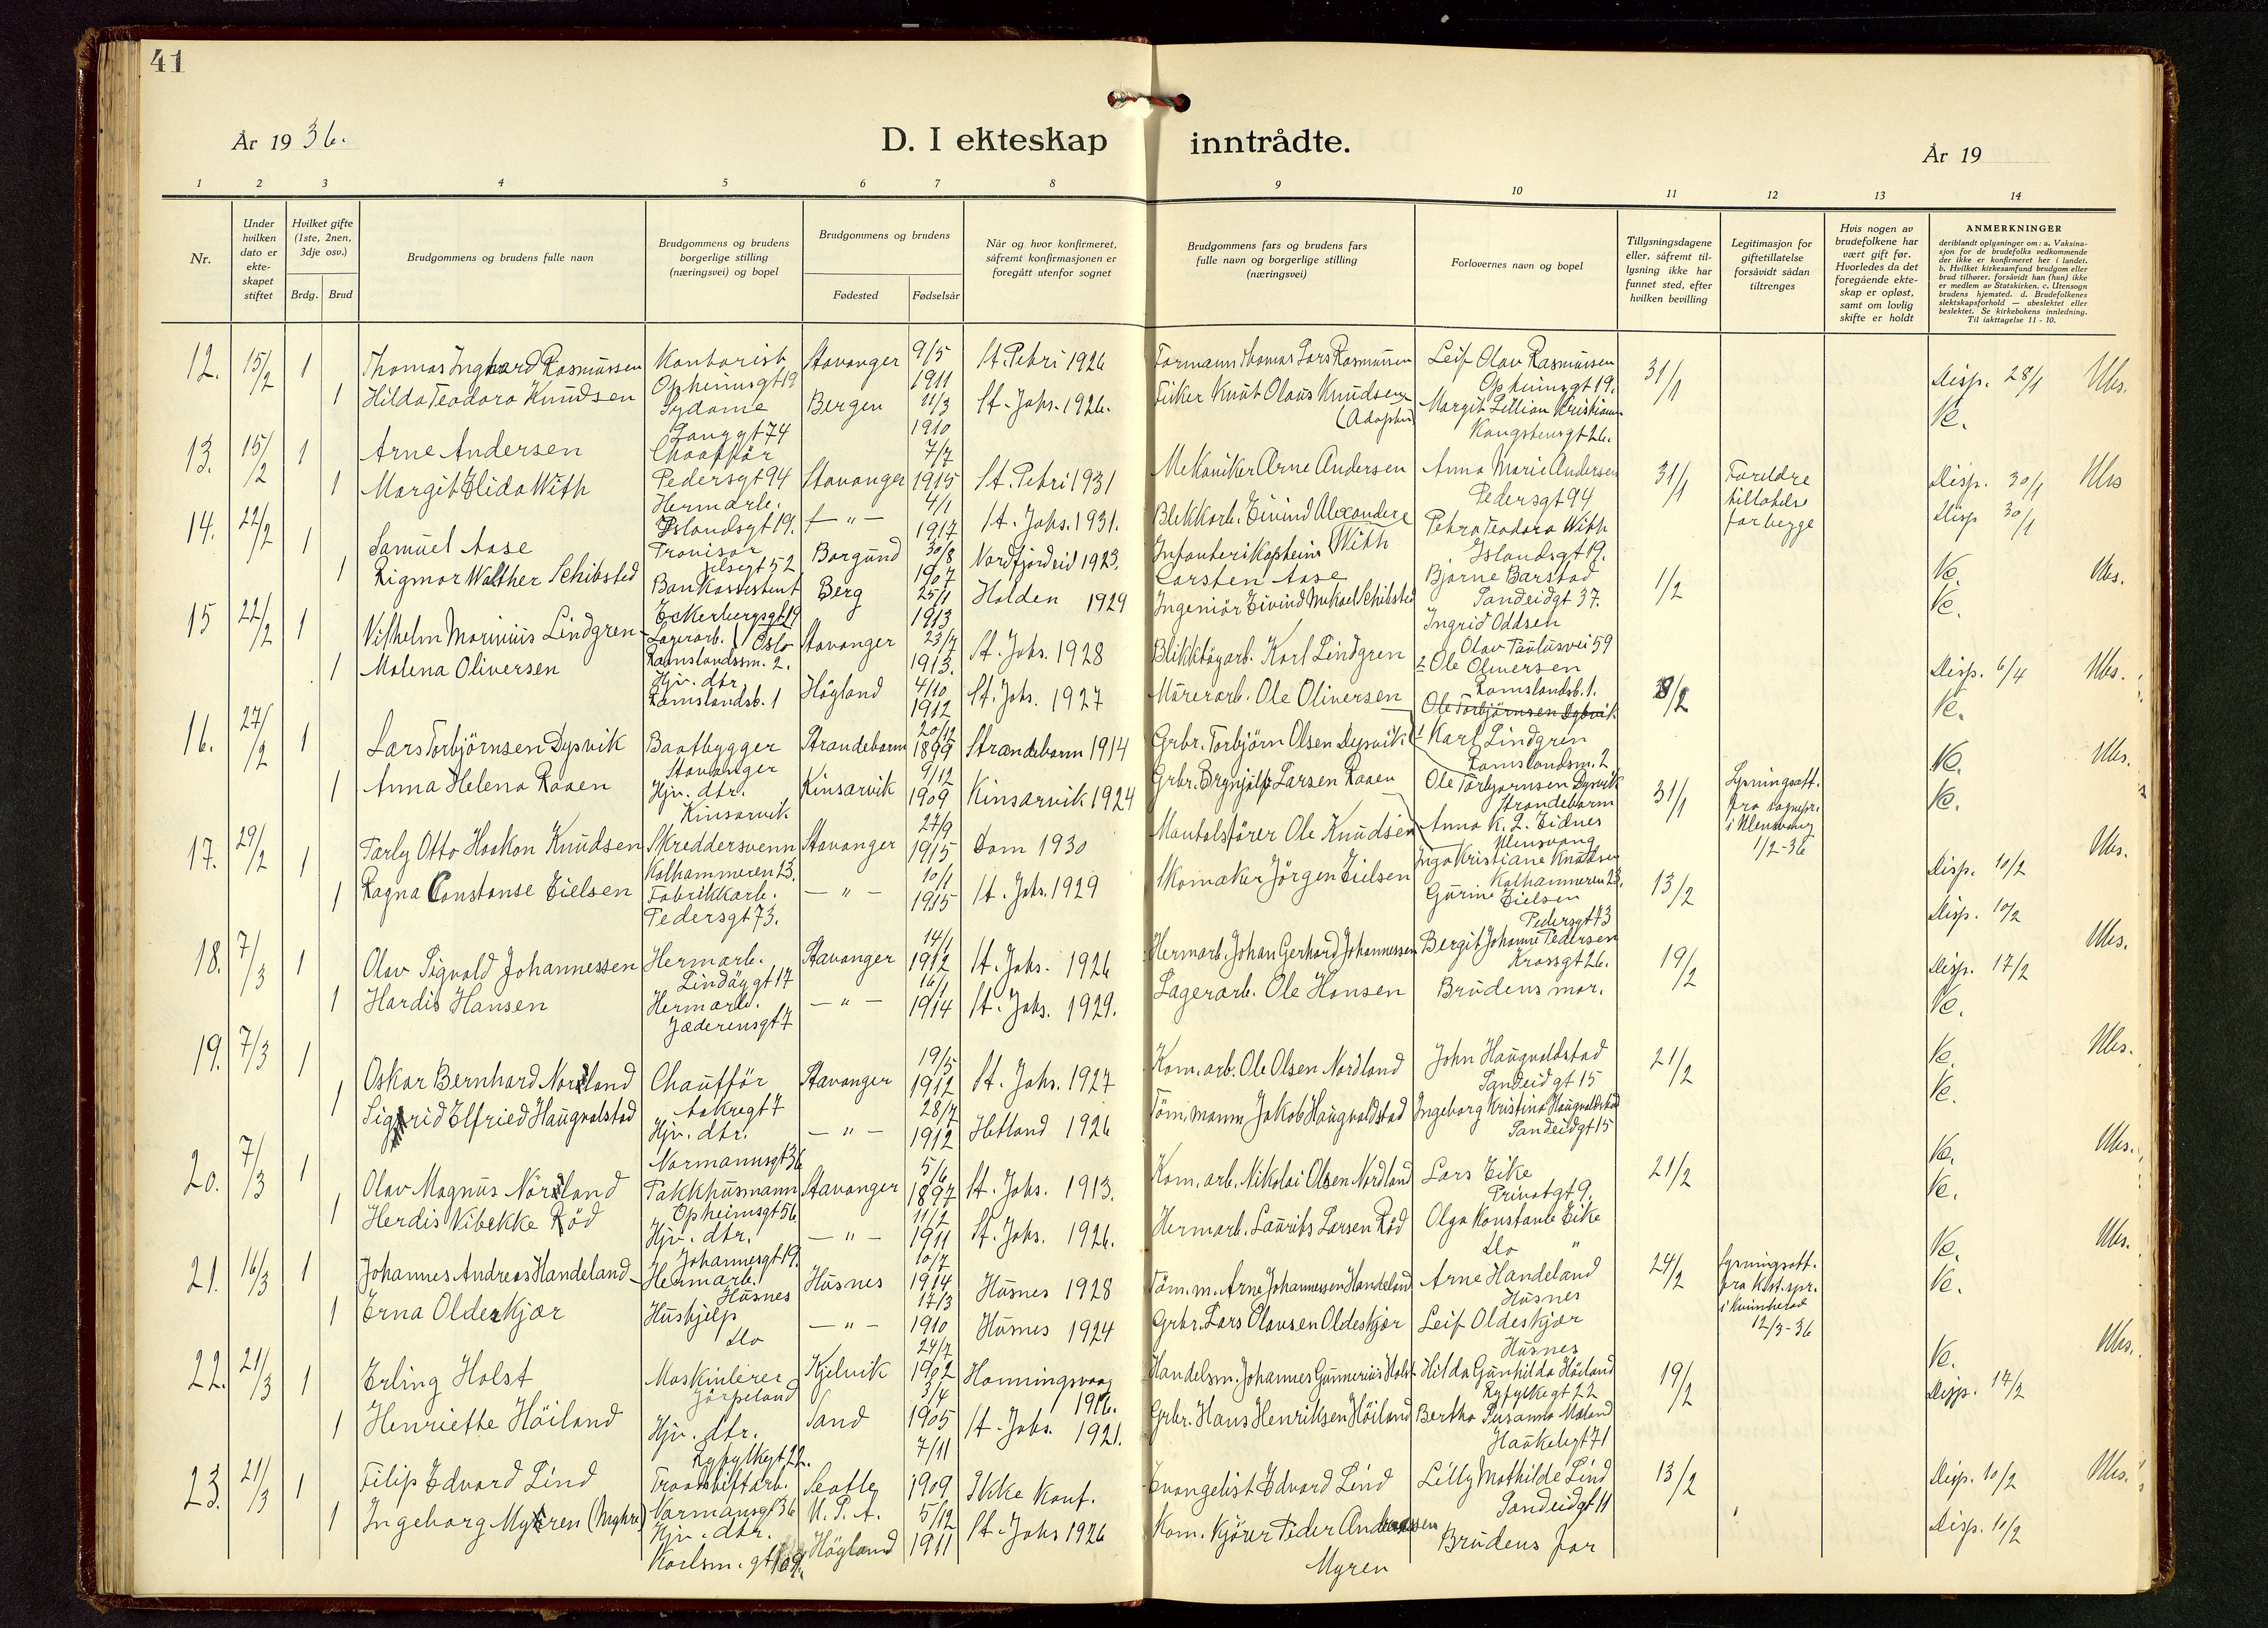 41
År 19 36.
D. I ekteskap inntrådte.
År 19
1 2 3 4 5 6 7 8 9 10 11 12 13 14
Nr.
Under hvilken dato er ekte-skapet stiftet
Hvilket gifte (1ste, 2nen, 3dje osv.)
Brdg. Brud
Brudgommens og brudens fulle navn
Brudgommens og brudens borgerlige stilling (næringsvei) og bopel
Brudgommens og brudens
Fødested Fødselsår
Når og hvor konfirmeret, såfremt konfirmasjonen er foregått utenfor sognet
Brudgommens fars og brudens fars fulle navn og borgerlige stilling (næringsvei)
Forlovernes navn og bopel
Tillysningsdagene eller, såfremt til-lysning ikke har funnet sted, efter hvilken bevilling
Legitimasjon for giftetillatelse forsåvidt sådan tiltrenges
Hvis nogen av brudefolkene har vært gift før. Hvorledes da det foregående ekte-skap er opløst, samt om lovlig skifte er holdt
ANMERKNINGER
deriblandt oplysninger om: a. Vaksina-sjon for de brudefolks vedkommende der ikke er konfirmeret her i landet. b. Hvilket kirkesamfund brudgom eller brud tilhører, forsåvidt han (hun) ikke er medlem av Statskirken. c. Utensogn brudens hjemsted. d. Brudefolkenes slektskapsforhold — ubeslektet eller beslektet. Se kirkebokens innledning. Til iakttagelse 11 - 10.
12. 15/2 1 Thomas Ingvard Rasmussen Kontorist Opheimsgt 19 Stavanger 9/5 1911 St. Petri 1926 Formann Thomas Lars Rasmussen Leif Olav Rasmussen Opheimsgt 19. 31/1 Disp. 28/1 Ubs.
1 Hilda Teodora Knudsen Sydame Langgt 74 Bergen 11/3 1910 St. Johs. 1926. Fisker Knut Olaus Knudsen (Adoptiv) Margit Lillian Kristians Kongstensgt 26. Ve.
13. 15/2 1 Arne Andersen Chauffør Pedersgt 94 Stavanger 7/7 1915 St. Petri 1931 Mekaniker Arne Andersen Anna Marie Andersen Pedersgt 94 31/1 Foreldre tillatelse for begge Disp. 30/1 Ubs
1 Margit Elida With Hermarb. Islandsgt 19. — " — 4/1 1917 St. Johs. 1931. Blekkarb. Eivind Alexander With Petra Teodora With Islandsgt 19. Disp 30/1
14. 22/2 1 Samuel Aase Provisor Jelsegt 52 Borgund 30/8 1907 Nordfjordeid 1923. Infanterikaptein Carsten Aase Bjarne Barstad Sandeidgt 37. 1/2 Ve. Ubs.
1 Rigmor Walther Schibsted Bankassistent Eckerbergsgt 19 Oslo Berg 25/1 1913 Halden 1929 Ingeniør Eivind Mikael Schibsted Ingrid Oddsen Olav Paulusvei 59 Ve.
15 22/2 1 Vilhelm Marinius Lindgren Lagerarb. Ramslandssm. 2. Stavanger 23/7 1913. St. Johs. 1928 Blikktøyarb. Karl Lindgren 2 Ole Oliversen Ramslandsb. 1. 8/2 Disp. 6/4 Ubs.
1 Malena Oliversen Hjv. dtr. Ramslandsb. 1 Høyland 4/10 1912 St. Johs. 1927 Murerarb. Ole Oliversen Ole Torbjørnsen Dysvik 1 Karl Lindgren Ramslandsm. 2. Ve.
16. 27/2 1 Lars Torbjørnsen Dysvik Baatbygger Stavanger Strandebarm 20/12 1899 Strandebarm 1914 Grbr. Torbjørn Olsen Dysvik Ole Torbjørnsen Dysvik Strandebarm 31/1 Lysningsatt. fra sognepr. i Ullensvang 1/2-36 Ve. Ubs.
1 Anna Helena Raaen Hjv. dtr. Kinsarvik Kinsarvik 9/12 1909 Kinsarvik 1924 Grbr. Brynjulf Larsen Raaen Anna K. L. Eidnes Ullensvang Ve.
17. 29/2 1 Tarly Otto Haakon Knudsen Skreddersvenn Kalhammeren 23. Stavanger 27/9 1915 Dom 1930 Mantalsfører Ole Knudsen Inga Kristiane Knudsen Kalhammeren 23. 13/2 Disp. 10/2 Ubs.
1 Ragna Constanse Eielsen Fabrikkarb. Pedersgt 73. — " — 10/1 1915 St. Johs. 1929 Skomaker Jørgen Eielsen Gurine Eielsen Pedersgt 73 Disp. 10/2
18. 7/3 1 Olav Sigvald Johannessen Hermarb. Lindøygt 17 Stavanger 14/1 1912 St. Johs. 1926 Hermarb. Johan Gerhard Johannessen Bergit Johanne Pedersen Krossgt 26. 19/2 Disp. 17/2 Ubs.
1 Hardis Hansen Hermarb. Jæderensgt 7 — " — 16/1 1914 St. Johs. 1929. Lagerarb. Ole Hansen Brudens mor. Ve.
19. 7/3 1 Oskar Bernhard Nordland Chauffør Aakregt 7 Stavanger 19/5 1912 St. Johs. 1927 Kom. arb. Ole Olsen Nordland John Haugvaldstad Sandeidgt 15 21/2 Ve. Ubs.
1 Sigrid Elfried Haugvalstad Hjv. dtr. Normannsgt 36 — " — 28/7 1912 Hetland 1926 Tømmermann Jakob Haugvaldstad Ingeborg Kristina Haugvaldstad Sandeidgt 15 Ve.
20. 7/3 1 Olav Magnus Nordland Pakkhusmann Opheimsgt 56 Stavanger 5/6 1897 St. Johs. 1913. Kom. arb. Nikolai Olsen Nordland Lars Eike Privatgt 9. 21/2 Ve. Ubs.
1 Herdis Vibekke Rød Hjv. dtr. Johannesgt 19. — " — 11/2 1911 St. Johs. 1926. Hermarb. Laurits Larsen Rød Olga Konstanse Eike do " Ve.
21. 16/3 1 Johannes Andreas Handeland Hermarb. Husnes Husnes 10/7 1914 Husnes 1928 Tøm. m. Arne Johannessen Handeland Arne Handeland Husnes 24/2 Lysningsatt. fra Kst. spr. i Kvinnherad 12/3-36 Ve. Ubs.
1 Erna Oldeskjær Hushjelp do — " — 17/3 1910 Husnes 1924 Grbr. Lars Olavsen Oldeskjær Leif Oldeskjær Husnes Ve.
22. 21/3 1 Erling Holst Maskinlærer Jørpeland Kjelvik 24/7 1902 Honningsvaag 1916. Handelsm. Johannes Gunnerius Holst Hilda Gunhilda Høiland Ryfylkegt 22 19/2 Ve. Ubs.
1 Henriette Høiland Hjv. dtr. Ryfylkgt 22. Sand 3/4 1905 St. Johs. 1921. Grbr. Hans Henriksen Høiland Bertha Susanna Maland Haukeligt 71 Disp. 14/2
23. 21/3 1 Filip Edvard Lind Normansgt 36 Seattle U. S. A. 7/11 1909 Ikke konf. Evangelist Edvard Lind Lilly Mathilde Lind Sandeidgt 11 13/2 Disp. 10/2 Ubs.
1 Ingeborg Myren (Myhre) Hjv. dtr. Karlsm. gt 109. Høyland 5/12 1911 St. Johs 1926 Kom. kjører Peder Andreassen Myren Brudens far Disp. 10/2